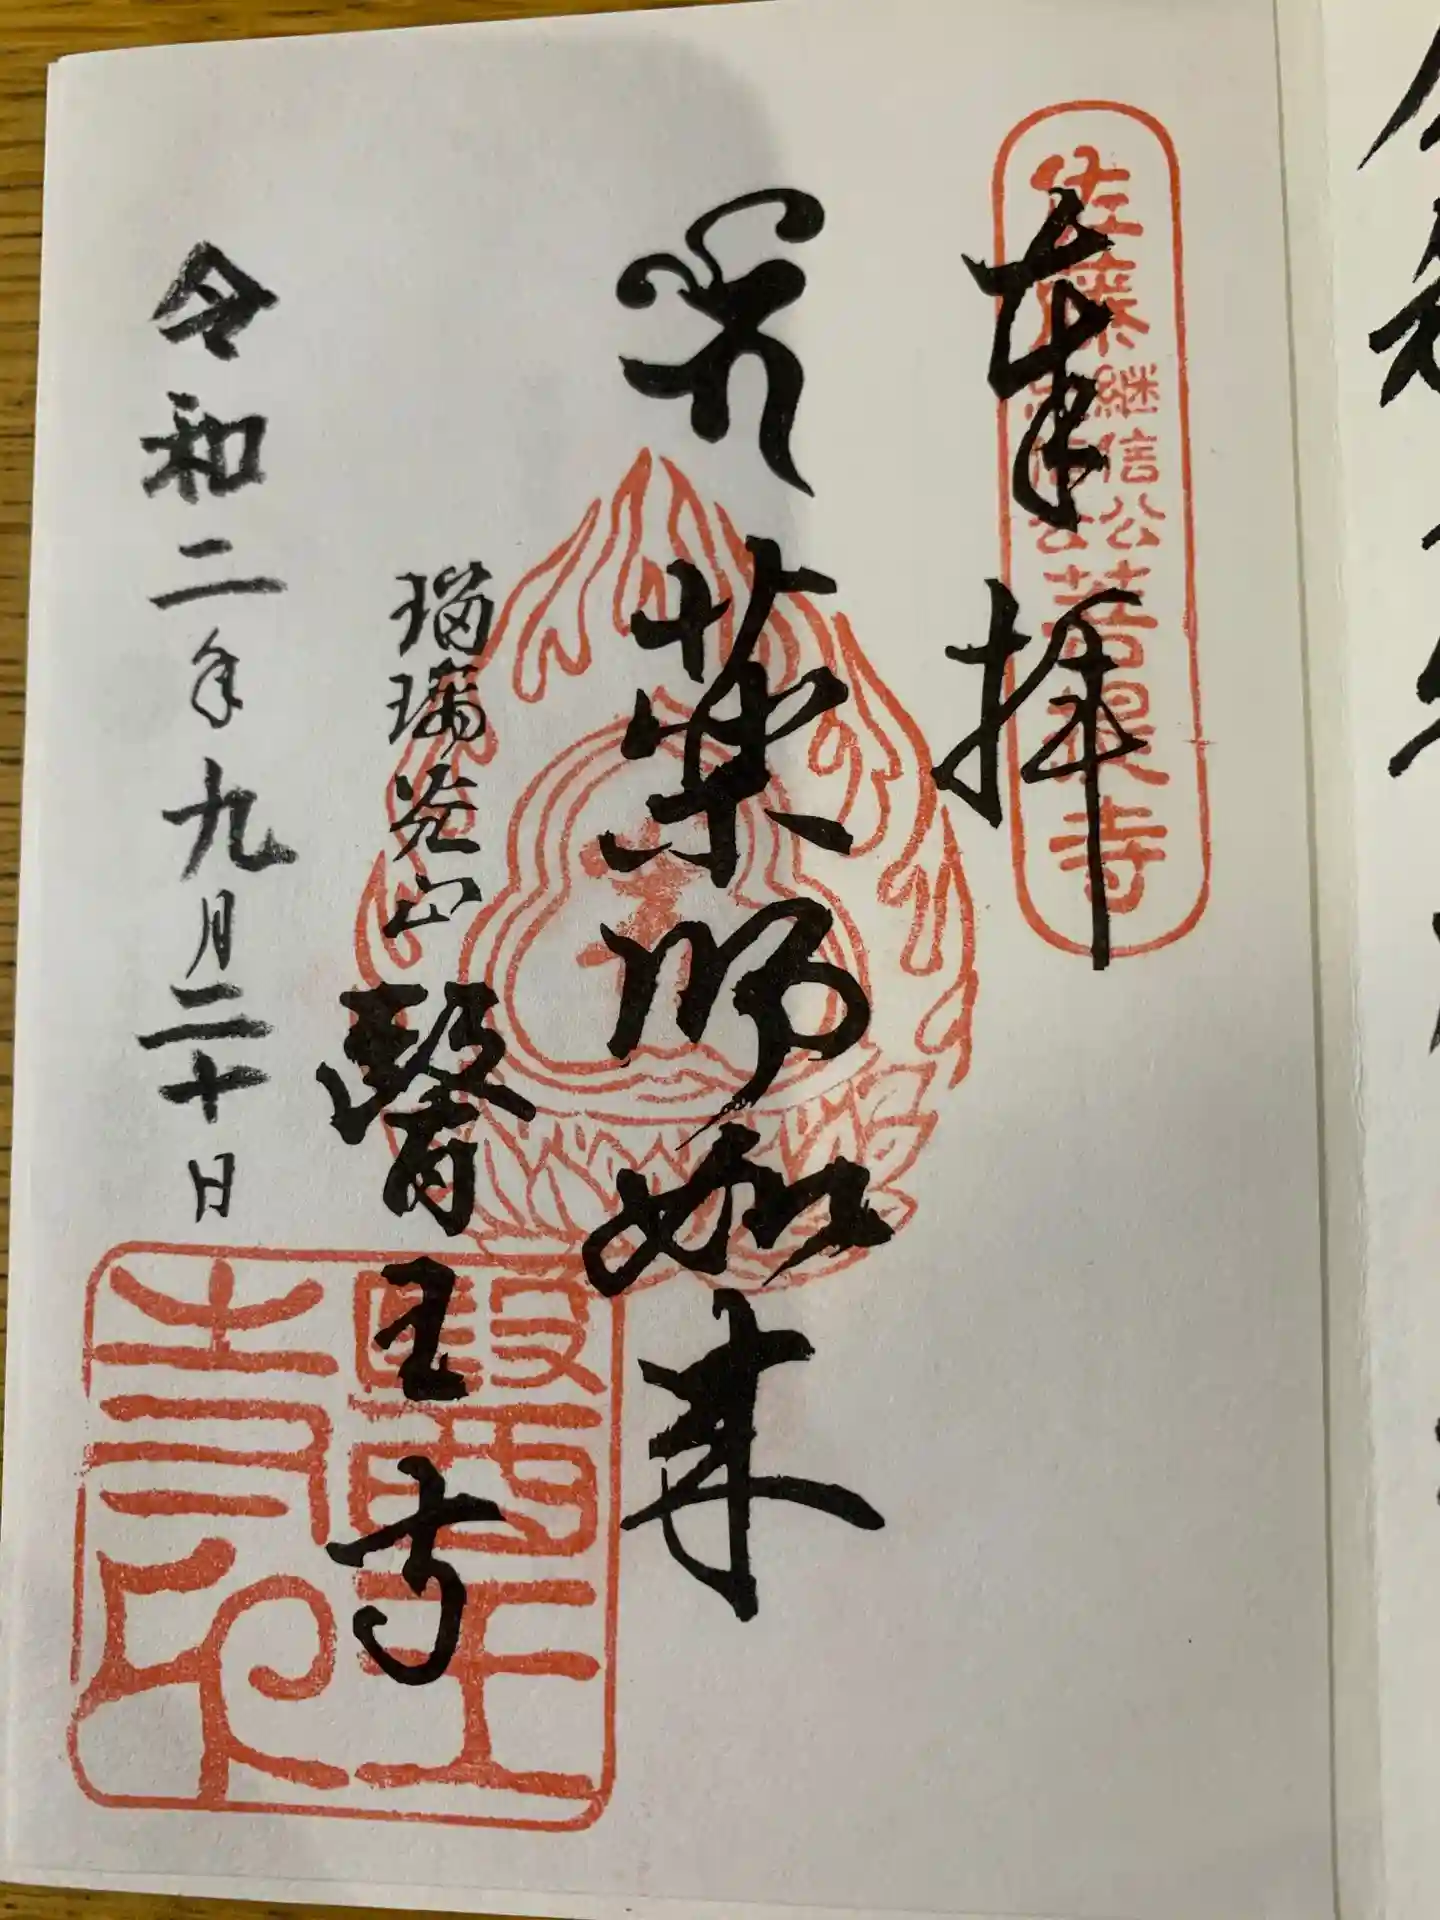 奉拝
佐藤継信公忠信公菩提寺
薬師如来
瑠璃光山
醫王寺
令和二年九月二十日
醫王寺印